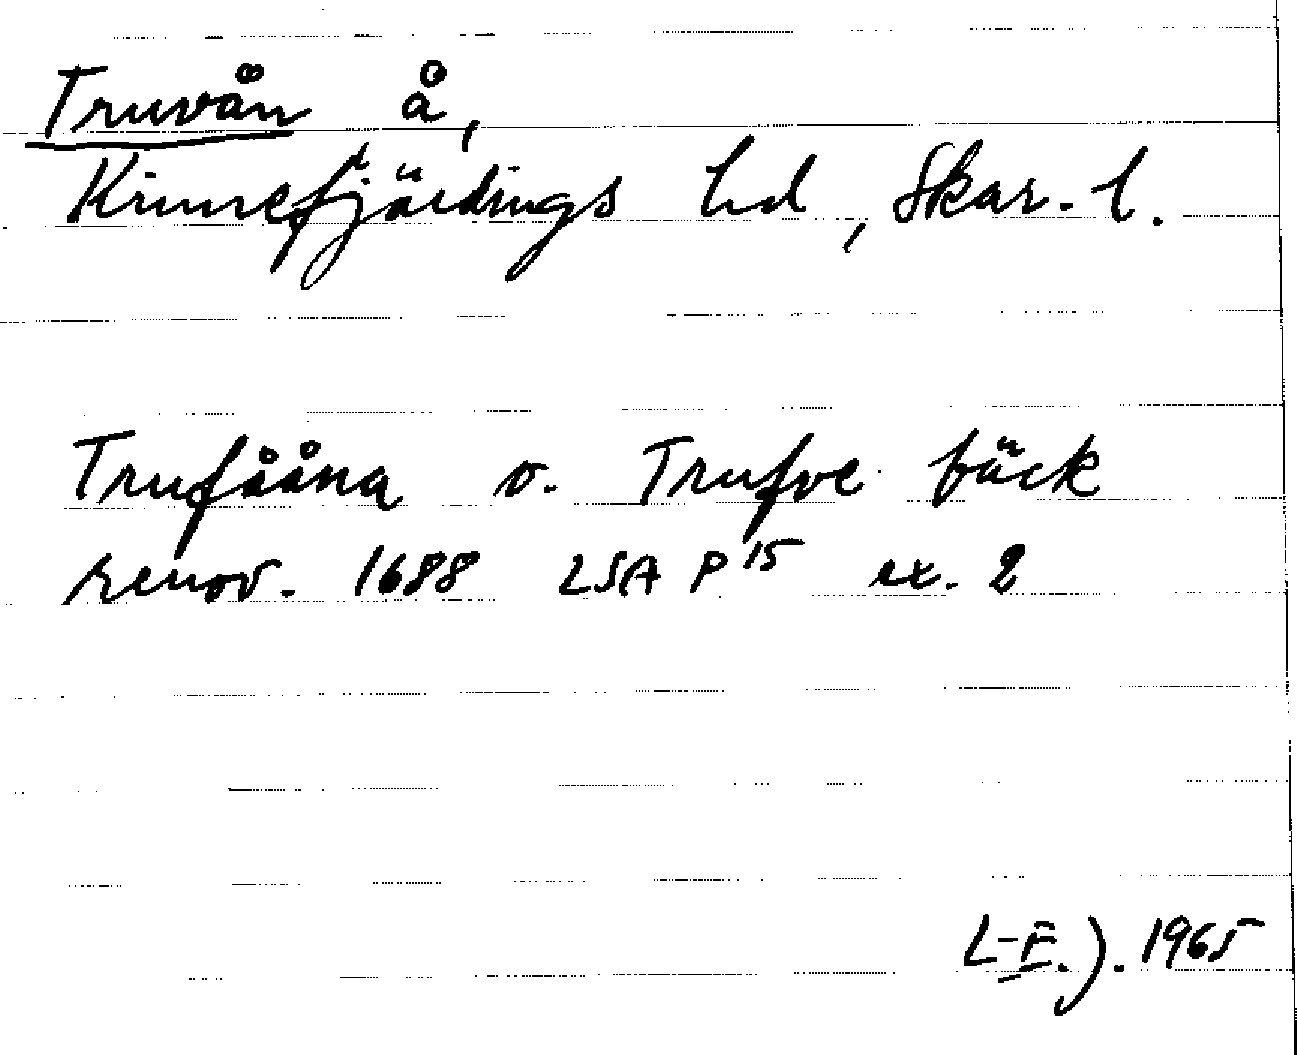 Truvån å,
Kinnefjärdings hd, Skar. l.
Trufååna o. Trufve bäck
renov. 1688 LSA P 15 ex. 2
L-E. J. 1965